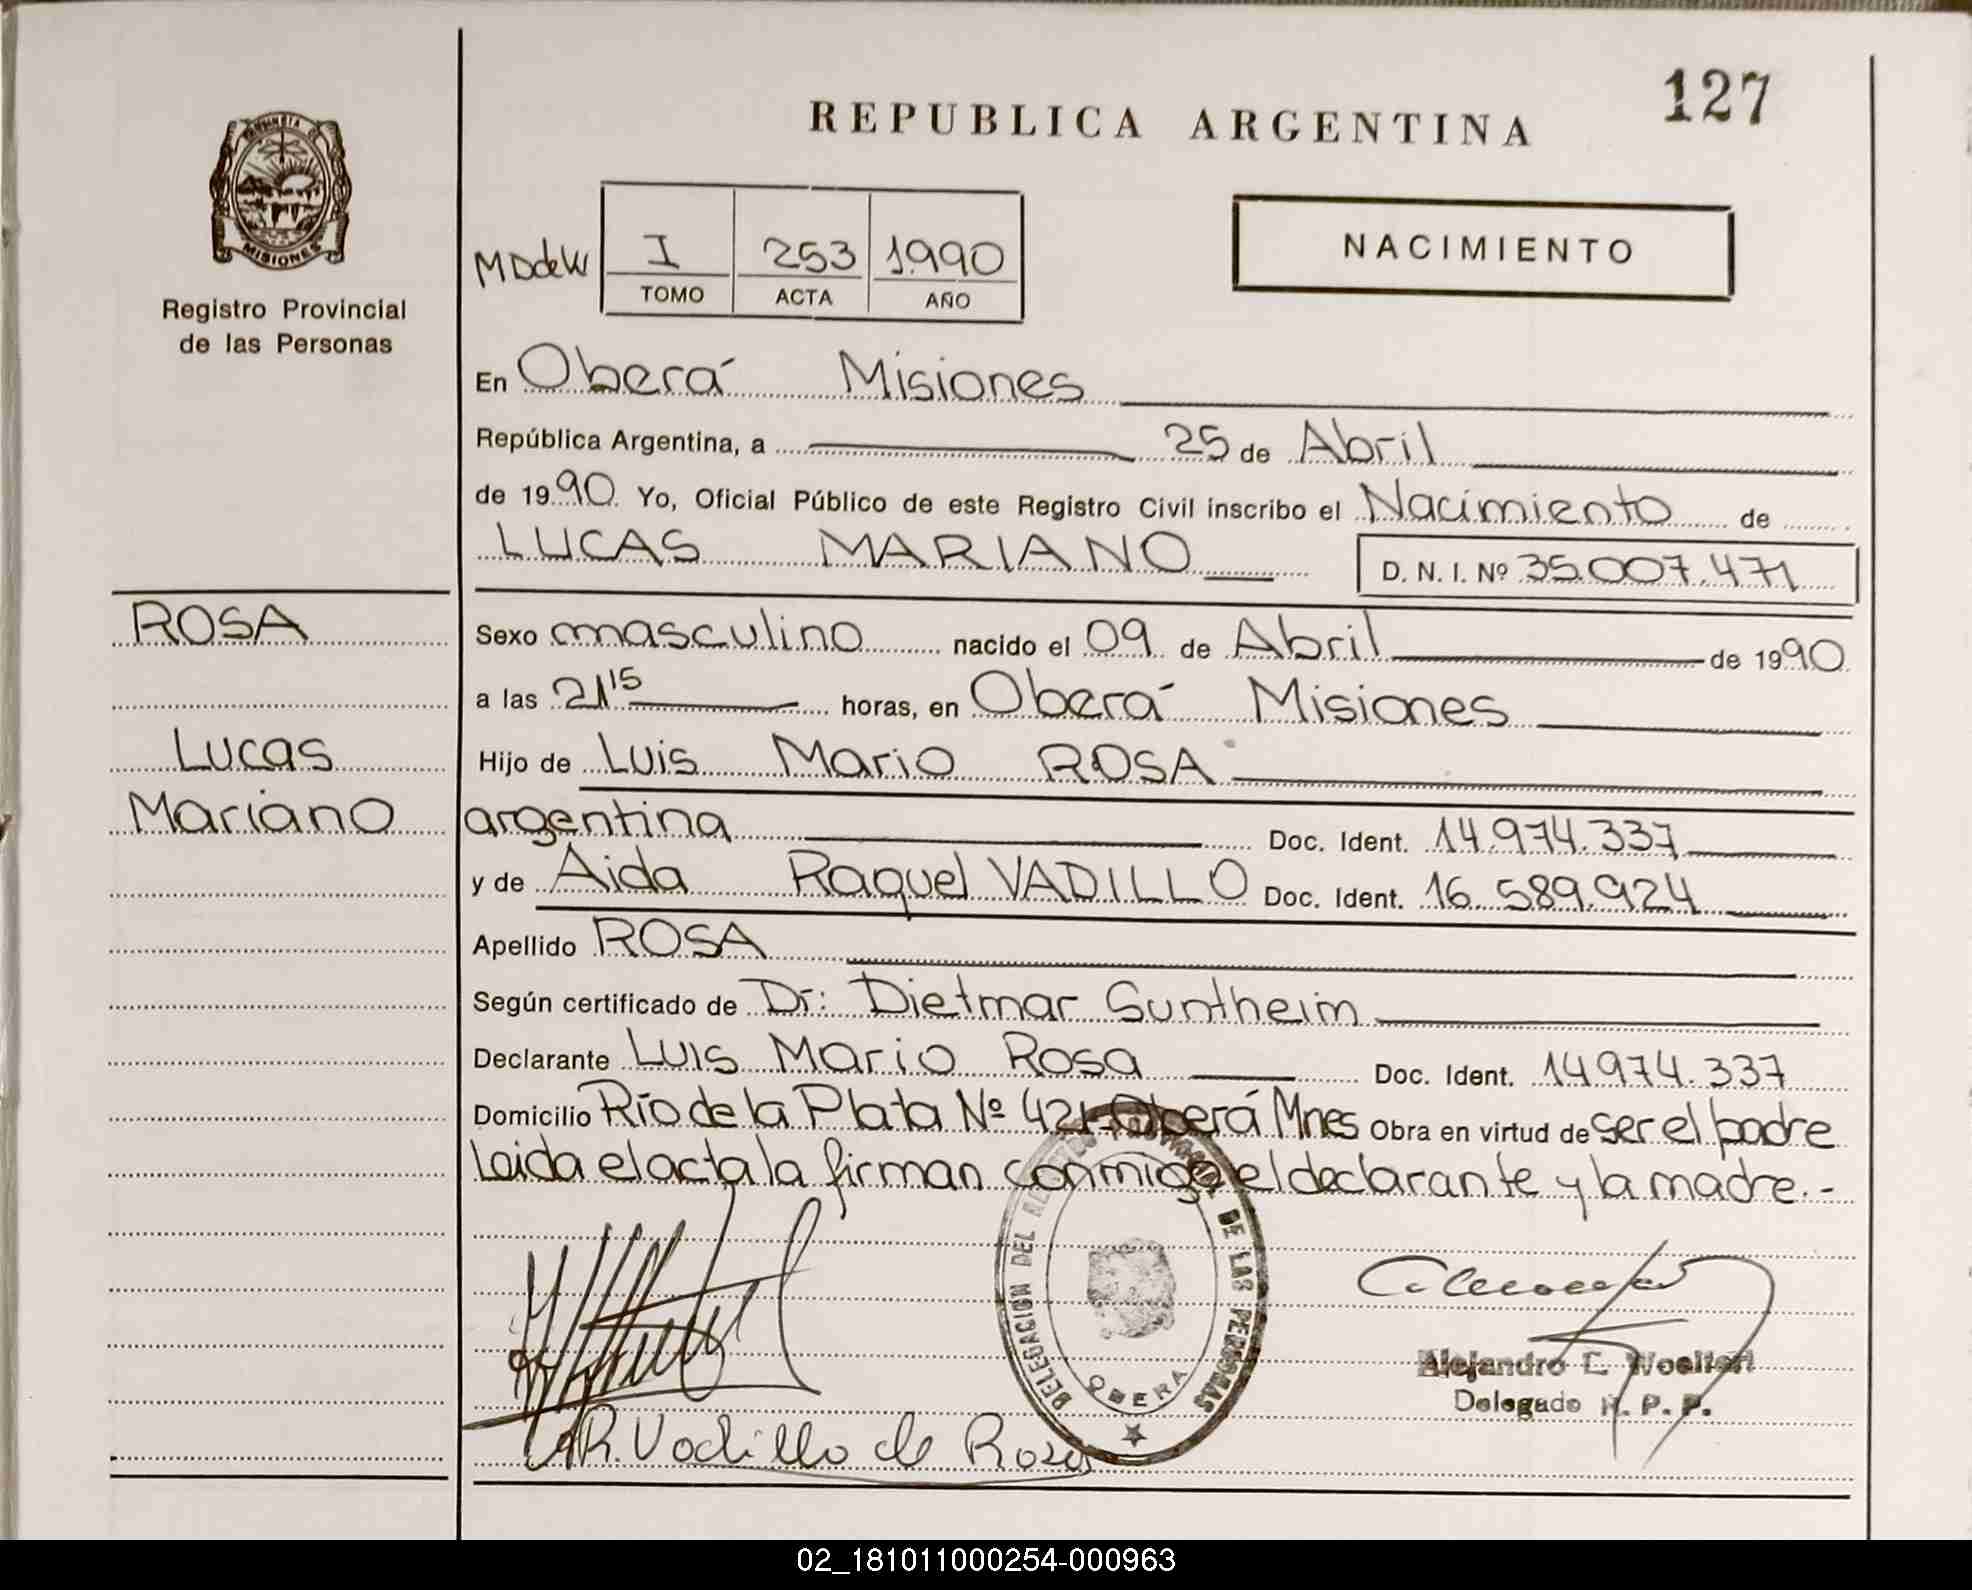 127
REPUBLICA ARGENTINA
PROVINCIA DE
MISIONES
Registro Provincial
de las Personas
MDdeW
I 253 1.990
TOMO ACTA AÑO
NACIMIENTO
En Oberá Misiones
República Argentina, a 25 de Abril
de 1990 Yo, Oficial Público de este Registro Civil inscribo el Nacimiento de
LUCAS MARIANO D. N. I. Nº 35.007.471
ROSA
Lucas
Mariano
Sexo masculino nacido el 09 de Abril de 1990
a las 21 15 horas, en Oberá Misiones
Hijo de Luis Mario ROSA
argentina Doc. Ident. 14.974.337
y de Aida Raquel VADILLO Doc. Ident. 16.589.924
Apellido ROSA
Según certificado de Dr: Dietmar Suntheim
Declarante Luis Mario Rosa Doc. Ident. 14974.337
Domicilio Río de la Plata Nº 421-Oberá Mnes Obra en virtud de ser el padre
Leida el acta la firman conmigo el declarante y la madre.-
DELEGACION DEL DE LAS PERSONAS
OBERA
Alejandro E.
Delegado R. P. P.
A R. Vadillo de Rosa
02_181011000254-000963